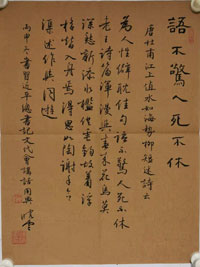 語不驚人死不休
唐杜甫江上值水如海勢聊短述詩云
為人性僻耽佳句語不驚人死不休
老去詩篇渾漫春來花鳥莫
深愁新添水檻供垂釣故著浮
槎替入舟焉得思如陶謝手令
渠述作與同遊
丙申冬書習近平總書記文代會講話用典